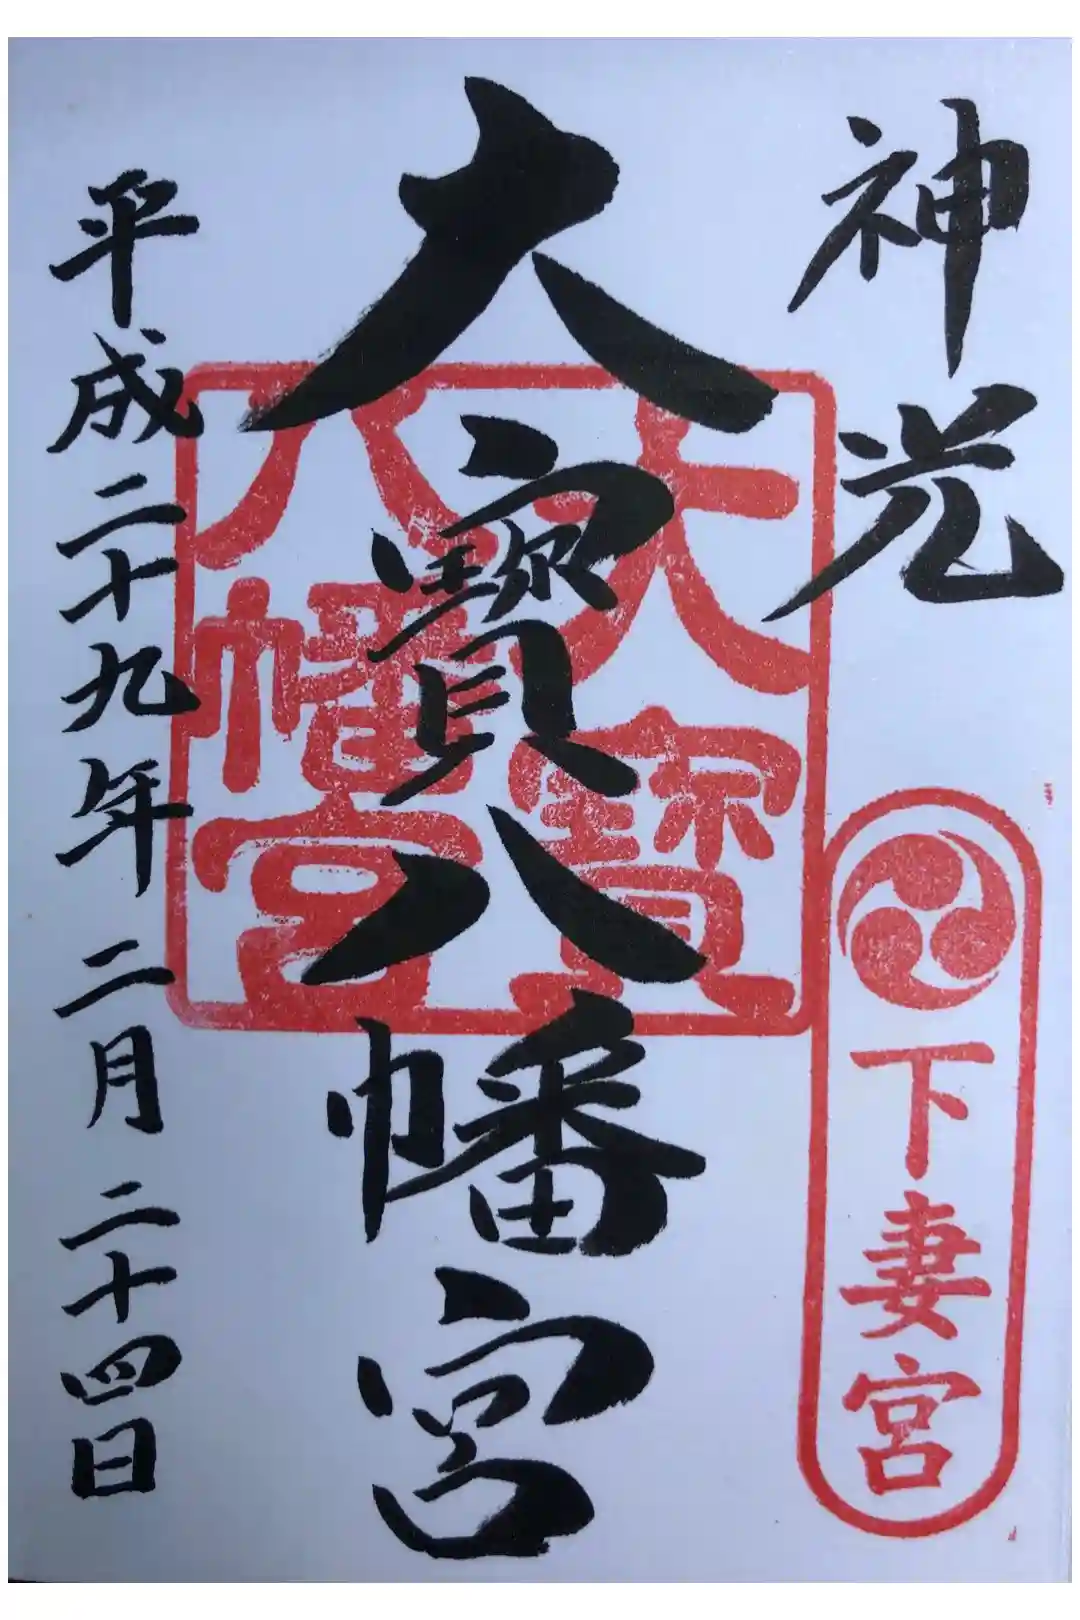 神光
下妻宮
大寳八幡宮
大寳
八幡宮
平成二十九年二月二十四日